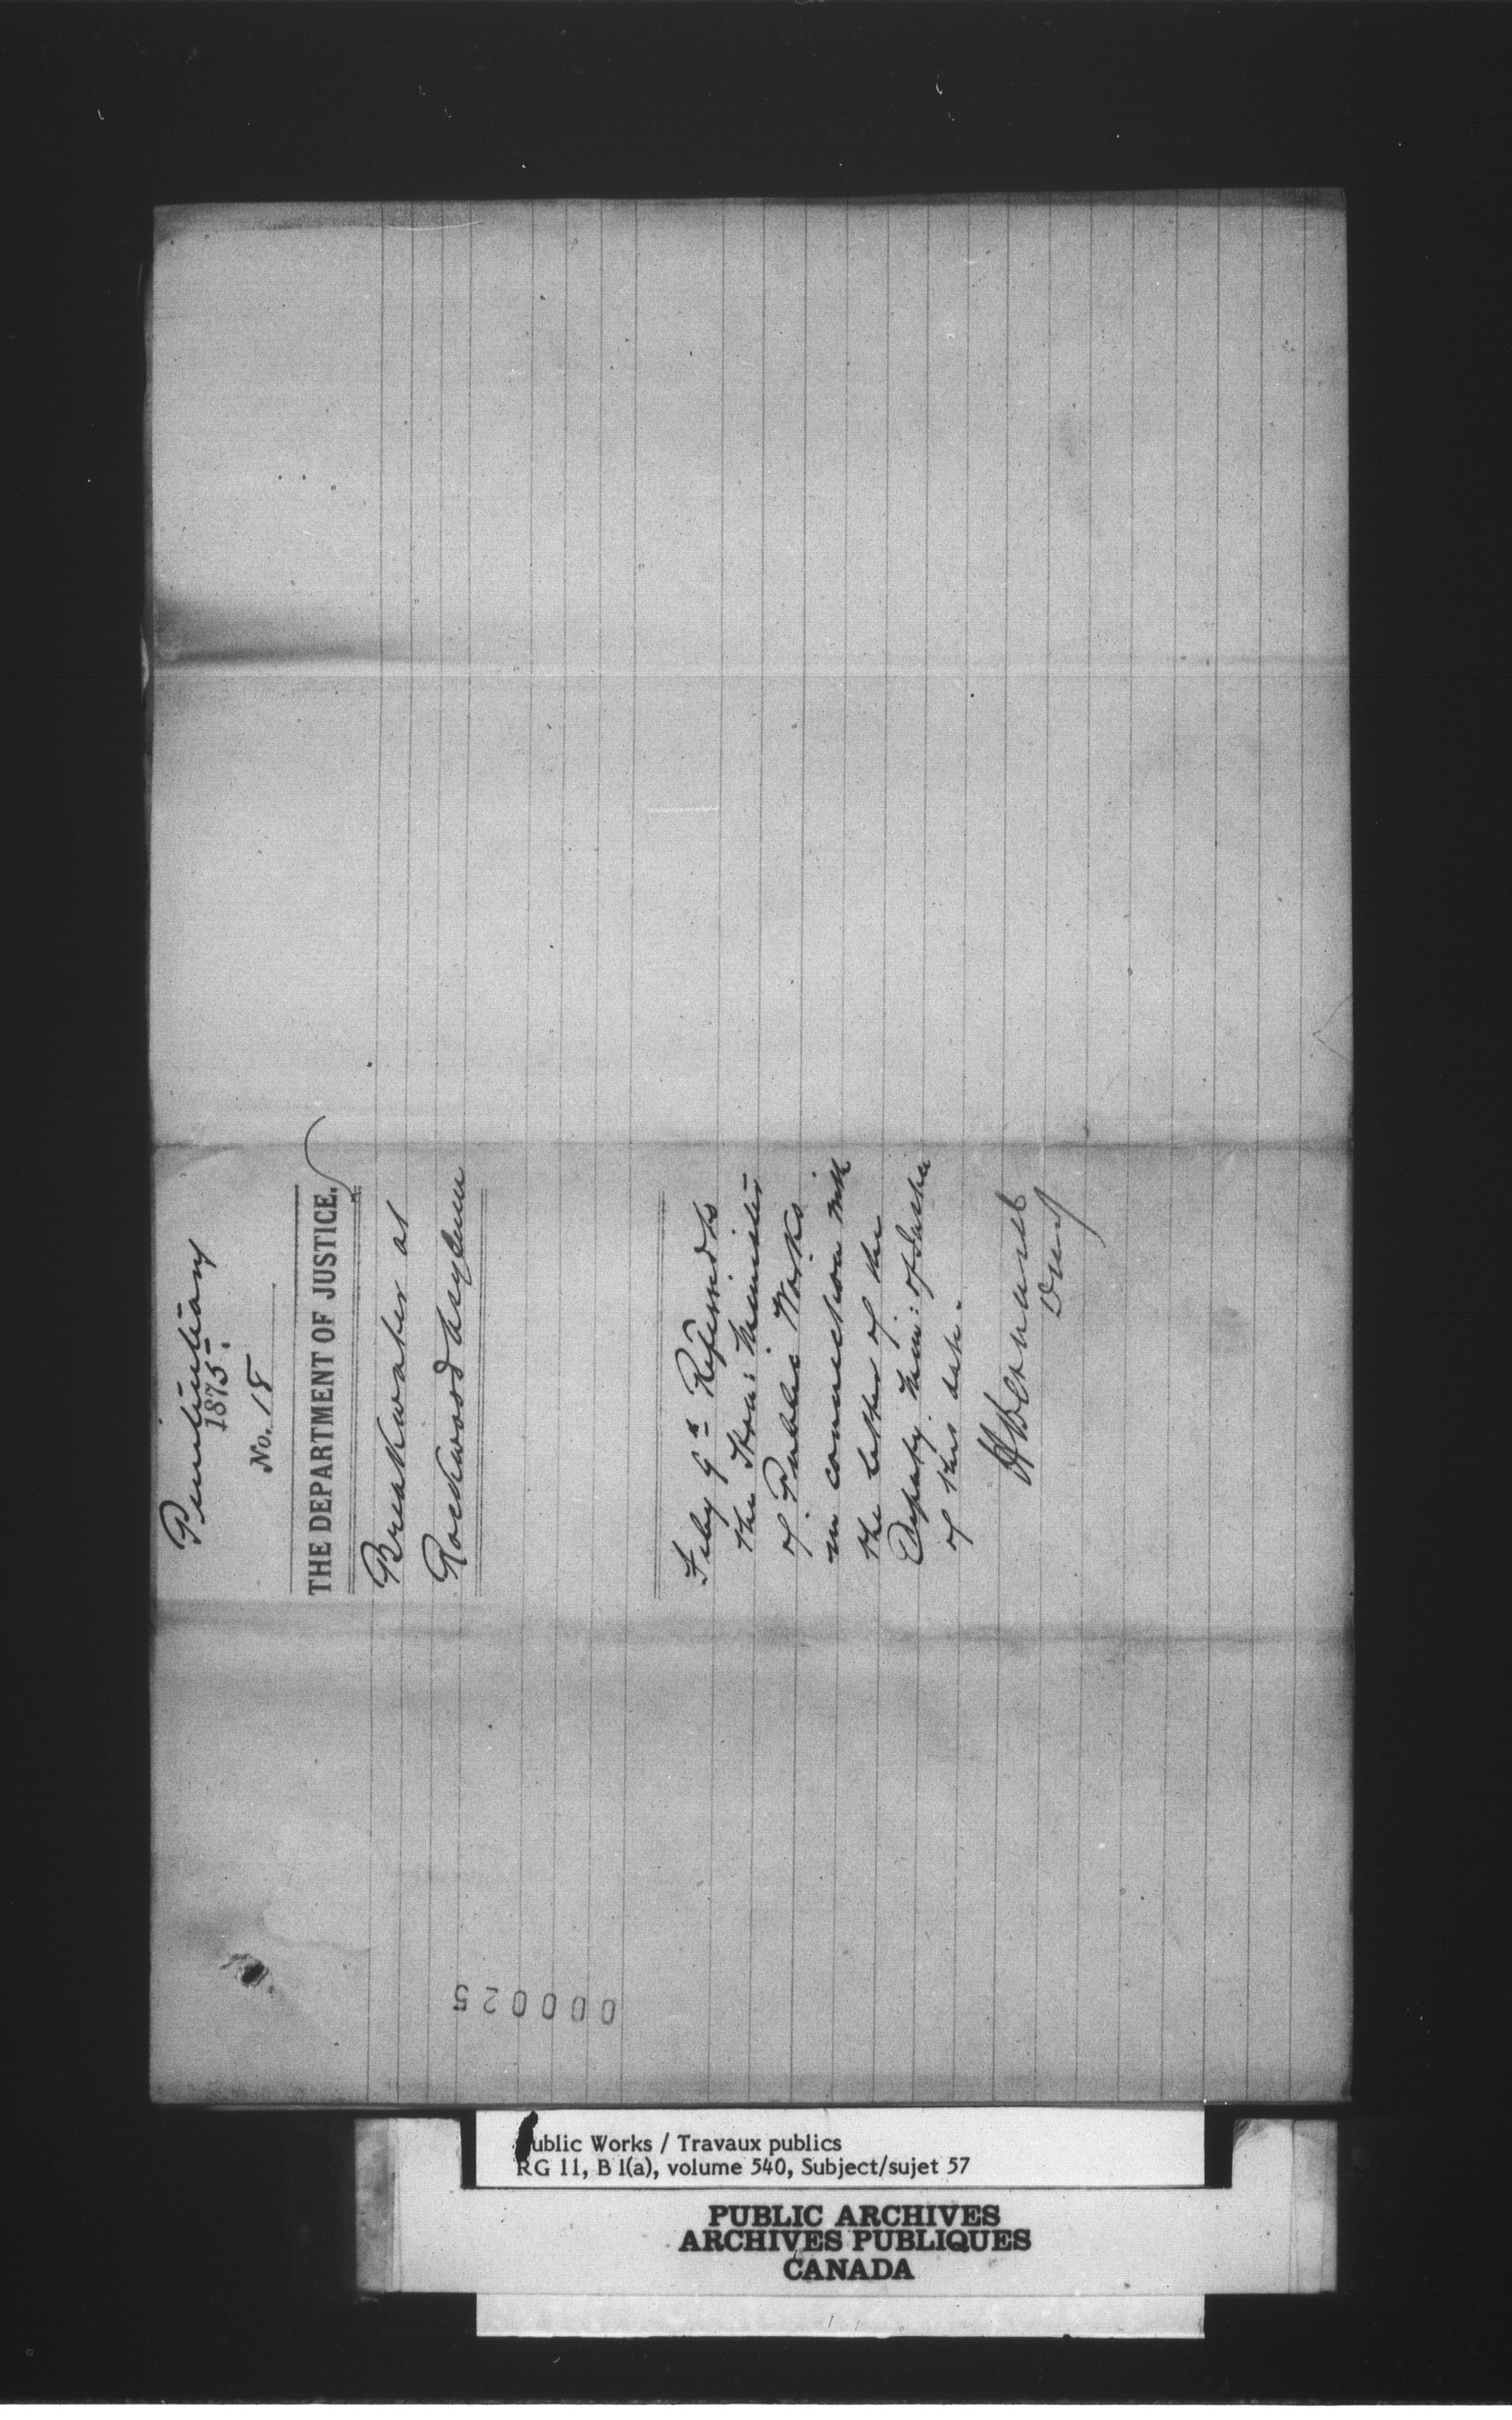 Penitentiary
1875.
No. 18
THE DEPARTMENT OF JUSTICE.
Breakwater at
Rockwood Asylum
Feby 9th Referred to
the Hon: Minister
of Public Works
in connection with
the letter of the
Deputy Min: of Justice
of this date.
H Bernard
D M J
000025
Public Works / Travaux publics
RG 11, B 1(a), volume 540, Subject/sujet 57
PUBLIC ARCHIVES
ARCHIVES PUBLIQUES
CANADA